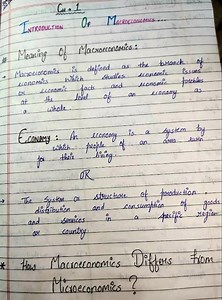 Ch # 1
Introduction Of Macroeconomics...
Meaning Of Macroeconomics :
Macroeconomics is defined as the branch of
economics which studies economic issues
or economic facts and economic problems
at the level of an economy as
a whole.
Economy : An economy is a system by
which people of an area earn
for their living.
OR
The system or structure of production,
distribution and consumption of goods
and services in a specific region
or country.
* How Macroeconomics Differs From
Microeconomics ?